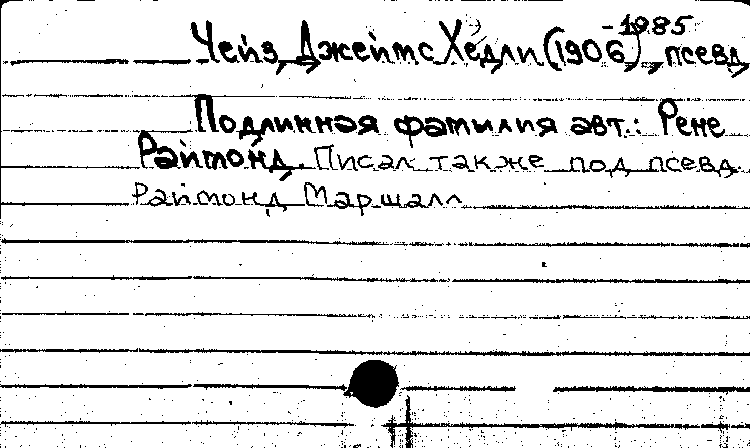 Чейз, Джеймс Хедли (1906-1985), псевд.
Подлинная фамилия авт.: Рене
Раймонд. Писал также под псевд.
Раймонд Маршалл